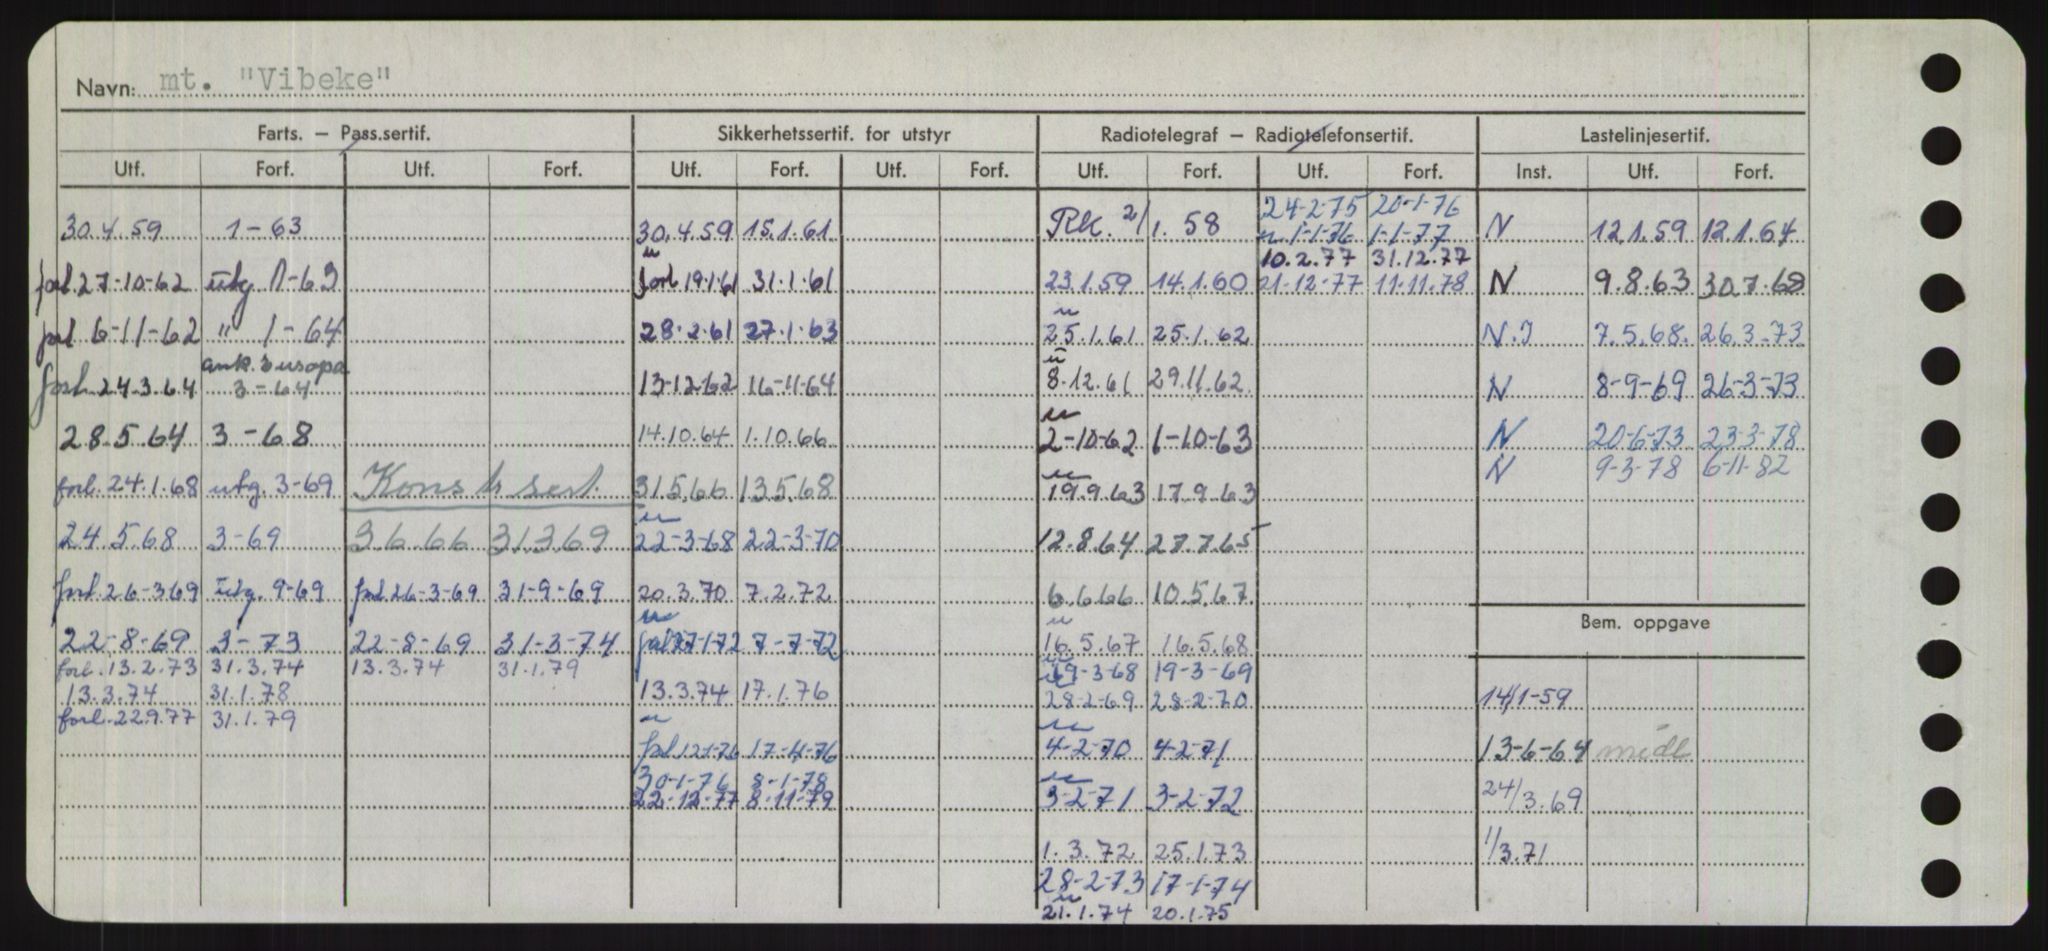 Navn: mt. "Vibeke"
Farts. — Pass.sertif. Sikkerhetssertif. for utstyr Radiotelegraf — Radiotelefonsertif. Lastelinjesertif.
Utf. Forf. Utf. Forf. Utf. Forf. Utf. Forf. Utf. Forf. Utf. Forf. Inst. Utf. Forf.
24-2-75 20-1-76
30.4.59 1-63 30.4.59 15.1.61 Rk. 2/1. 58 u 1-1-76 1-1-77 N 12.1.59 12.1.64
10.2.77 31.12.77
forl 27-10-62 utg. 1-63 u forl 19.1.61 31.1.61 23.1.59 14.1.60 21-12-77 11.11.78 N 9.8.63 30.7.68
forl 6-11-62 " 1-64 28.2.61 27.1.63 u 25.1.61 25.1.62 N.I 7.5.68. 26.3.73
ank. Europa
forl. 24.3.64 3-64 13-12-62 16-11-64 u 8.12.61 29.11.62 N 8-9-69 26-3-73
28.5.64 3-68 14.10.64 1.10.66 u 2-10-62 1-10-63 N 20-6-73 23-3-78
N 9-3-78 6-11-82
forl. 24.1.68 utg. 3-69 Konstr sert. 31.5.66 13.5.68 u 19.9.63 17.9.63
24.5.68 3-69 3.6.66 31.3.69 u 22-3-68 22-3-70 12.8.64 27.7.65
forl. 26-3-69 utg. 9-69 forl 26-3-69 31-9-69 20.3.70 7.2.72 6.6.66 10.5.67
22-8-69 3-73 22-8-69 31-3-74 u forl 27-1-72 7-7-72 u 16.5.67 16.5.68
forl. 13.2.73 31.3.74 13.3.74 31.1.79 u 19-3-68 19-3-69
13.3.74 31.1.78 13.3.74 17.1.76 u 28-2-69 28-2-70
forl. 22.9.77 31.1.79
u forl 12-1-76 17-4-76 u 4-2-70 4-2-71
30-1-76 8-1-78
22-12-77 8-11-79 u 3-2-71 3-2-72
1.3.72 25.1.73
28-2-73 17-1-74
u 21.1.74 20.1.75
Bem. oppgave
14/1-59
13-6-64 midl
24/3.69
1/3.71